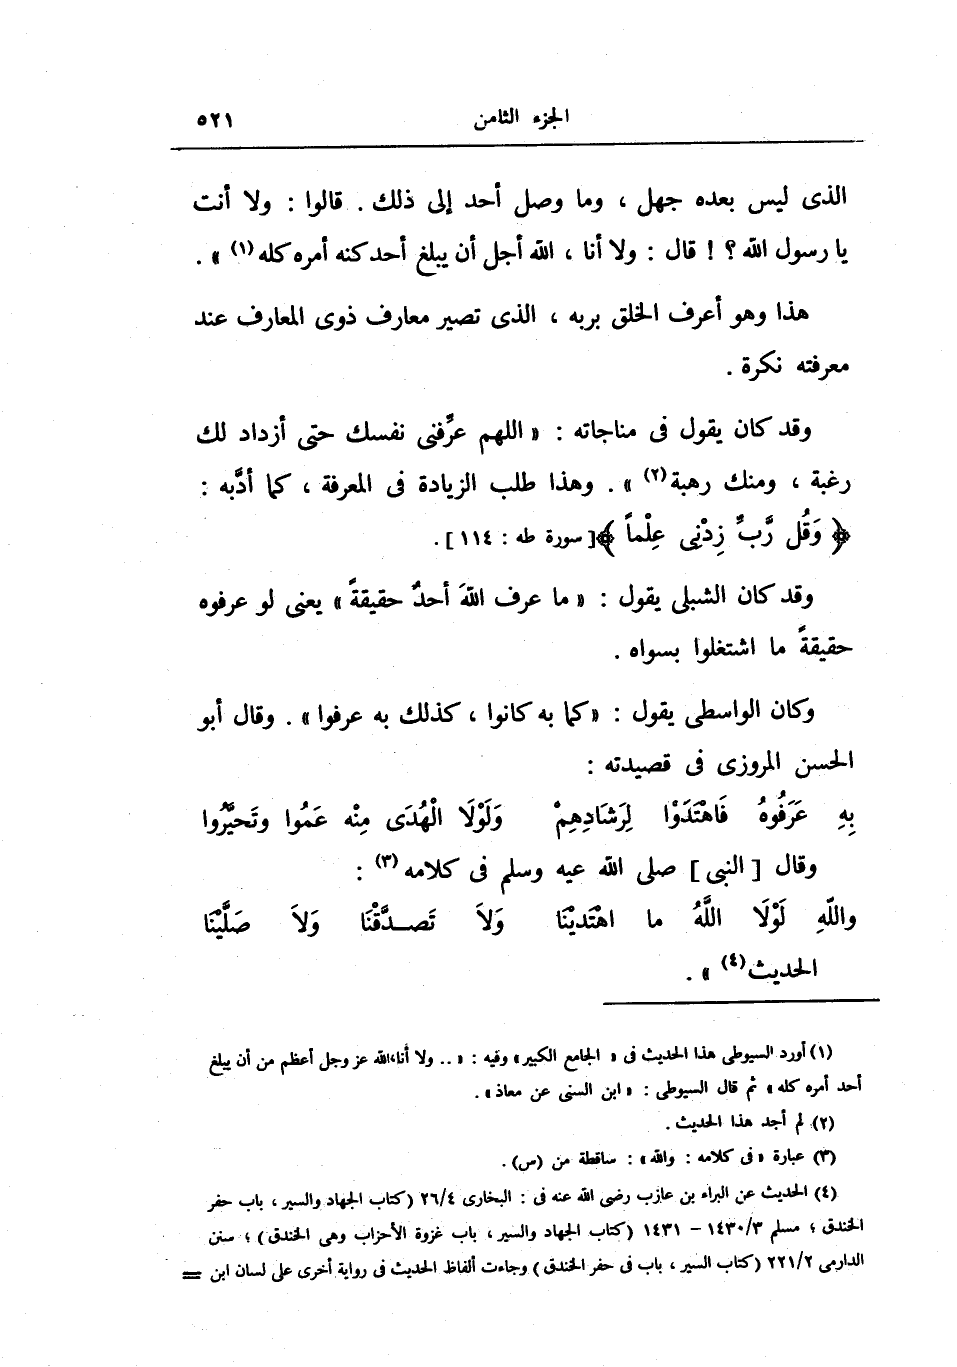 الجزء الثامن ٥٢١
الذى ليس بعده جهل ، وما وصل أحد إلى ذلك . قالوا : ولا أنت
يا رسول الله ؟ ! قال : ولا أنا ، الله أجل أن يبلغ أحد كنه أمره كله (١) » .
هذا وهو أعرف الخلق بربه ، الذى تصير معارف ذوى المعارف عند
معرفته نكرة .
وقد كان يقول فى مناجاته : « اللهم عرِّفنى نفسك حتى أزداد لك
رغبة ، ومنك رهبة (٢) » . وهذا طلب الزيادة فى المعرفة ، كما أدَّبه :
﴿ وَقُل رَّبِّ زِدْنِى عِلْماً ﴾ [ سورة طه : ١١٤ ] .
وقد كان الشبلى يقول : « ما عرف اللهَ أحدٌ حقيقةً » يعنى لو عرفوه
حقيقةً ما اشتغلوا بسواه .
وكان الواسطى يقول : « كما به كانوا ، كذلك به عرفوا » . وقال أبو
الحسن المروزى فى قصيدته :
بِهِ عَرَفُوهُ فَاهْتَدَوْا لِرَشَادِهِمْ وَلَوْلَا الْهُدَى مِنْه عَمُوا وتَحيَّرُوا
وقال [ النبى ] صلى الله عيه وسلم فى كلامه (٣) :
واللّهِ لَوْلَا اللَّهُ ما اهْتَديْنَا وَلاَ تَصـدَّقْنَا وَلاَ صَلَّيْنَا
الحديث (٤) » .
(١) أورد السيوطى هذا الحديث فى « الجامع الكبير » وفيه : « .. ولا أنا،الله عز وجل أعظم من أن يبلغ
أحد أمره كله » ثم قال السيوطى : « ابن السنى عن معاذ » .
(٢) لم أجد هذا الحديث .
(٣) عبارة « فى كلامه : والله » : ساقطة من (س) .
(٤) الحديث عن البراء بن عازب رضى الله عنه فى : البخارى ٢٦/٤ (كتاب الجهاد والسير ، باب حفر
الخندق ؛ مسلم ١٤٣٠/٣ – ١٤٣١ (كتاب الجهاد والسير ، باب غزوة الأحزاب وهى الخندق ) ؛ سنن
الدارمى ٢٢١/٢ (كتاب السير ، باب فى حفر الخندق ) وجاءت ألفاظ الحديث فى رواية أخرى على لسان ابن =